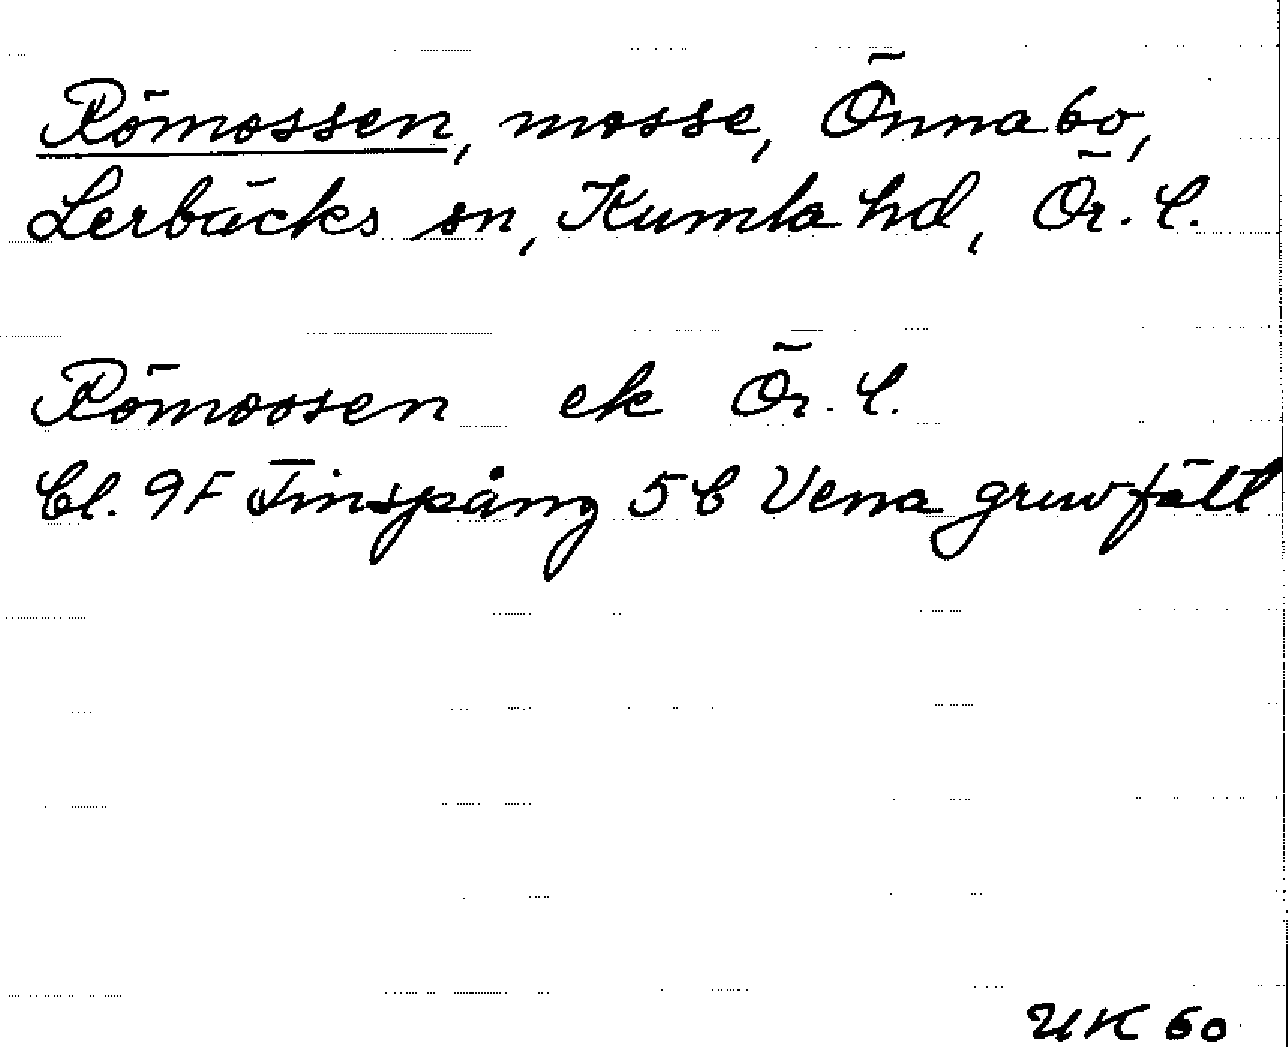 Römossen, mosse, Önnabo,
Lerbäcks sn, Kumla hd, Ör. l.
Römossen ek Ör. l.
Bl. 9F Finspång 5b Vena gruvfält
UK 60